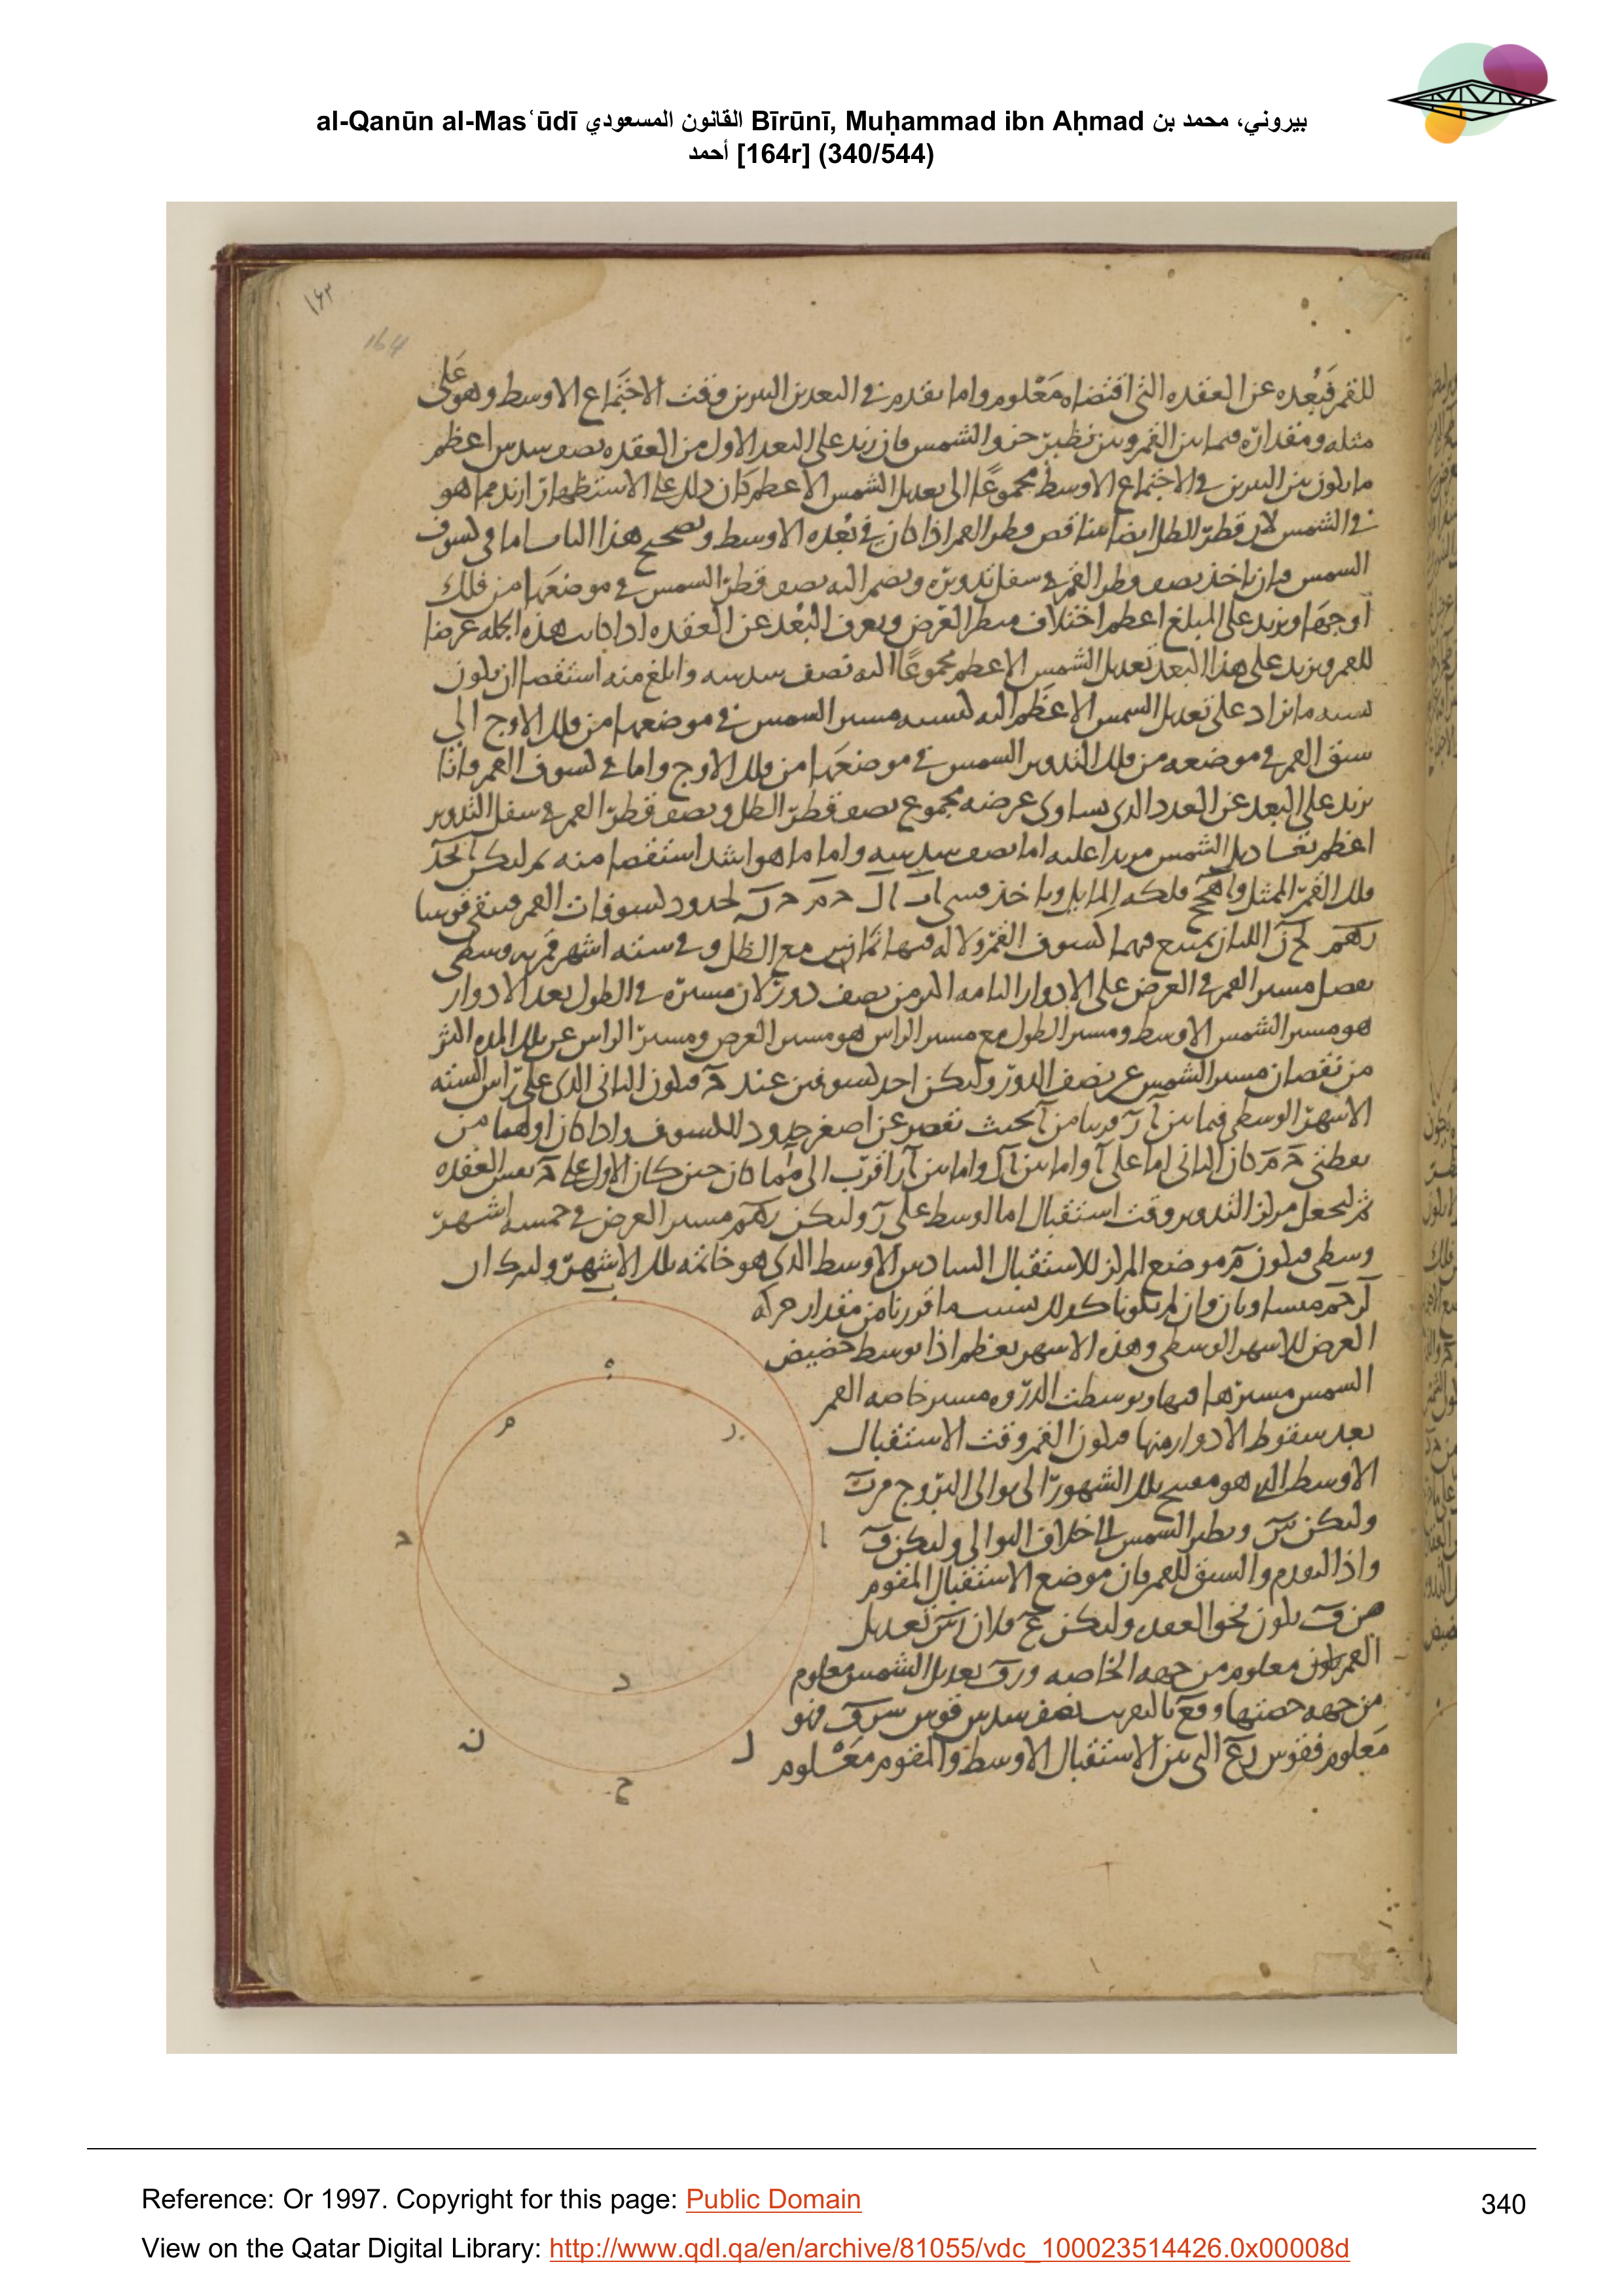 al-Qanūn al-Masʿūdī القانون المسعودي Bīrūnī, Muḥammad ibn Aḥmad بيروني، محمد بن
أحمد [164r] (340/544)
١٦٣
164
للقمر فبعده عن العقده التى اقتضاه معلوم واما بقدم فى البعدين النيرين وقت الاجتماع الاوسط وهو على
مثله ومقداره فيما بين القمر وبين نظير جزو الشمس فان زيد على البعد الاول من العقده نصف سدس اعظم
ما يكون بين النيرين فى الاجتماع الاوسط مجموعًا الى تعديل الشمس الاعظم كان ذلك على الاستظهار ازيد مما هو
فى الشمس لان قطر الظل ايضا يتناقص وقطر القمر اذا كان فى بعده الاوسط وتصحيح هذا الباب اما فى كسوف
الشمس فان ناخذ نصف قطر القمر فى سفل تدويره ونضم اليه نصف قطر الشمس فى موضعها من فلك
اوجها ونزيد على المبلغ اعظم اختلاف منظر العرض ونعرف البعد عن العقده اذا كانت هذه الجمله عرضا
للقمر ونزيد على هذا البعد تعديل الشمس الاعظم مجموعًا اليه نصف سدسه وابلغ منه استقصا ان يكون
نسبه ما يزاد على تعديل الشمس الاعظم اليه كنسبه مسير الشمس فى موضعها من فلك الاوج الى
سبق القمر فى موضعه من فلك التدوير الشمس فى موضعها من فلك الاوج واما فى كسوف القمر فانا
نزيد على البعد عن العدد الذى يساوى عرضه مجموع نصف قطر الظل ونصف قطر القمر فى سفل التدوير
اعظم تعاديل الشمس مزيدا عليه اما نصف سدسه واما ما هو اشد استقصا منه ثم ليكن ابجد
فلك القمر الممثل و فلكه المايل وناخذ قسى لحدود كسوفات القمر فتبقى قوسا
اللتان يمتنع فيهما كسوف القمر ولا له فيها تماس مع الظل وفى سته اشهر قمريه وسطى
يفضل مسير القمر فى العرض على الادوار التامه اكثر من نصف دور لان مسيره فى الطول بعد الادوار
هو مسير الشمس الاوسط ومسير الطول مع مسير الراس هو مسير العرض ومسير الراس عن تلك المده اكثر
من نقصان مسير الشمس عن نصف الدور وليكن احد كسوفين عند فيكون الثانى الذى على راس السته
الاشهر الوسطى فيما بين قريبا من بحيث تقصر عن اصغر حدود الكسوف واذا كان اولهما من
نقطتى كان الثانى اما على واما بين واما بين اقرب الى مما كان حين كان الاول على نفس العقده
ثم ليجعل مركز التدوير وقت استقبال اما الوسط على وليكن مسير العرض فى خمسه اشهر
وسطى فيكون موضع المركز للاستقبال السادس الاوسط الذى هو خاتمه تلك الاشهر وليكن ان
متساويان وان لم يكونا كذلك بسبب ما قررنا من مقدار حركه
العرض للاشهر الوسطى وهذه الاشهر تعظم اذا توسط حضيض
الشمس مسيرها فيها وتوسطت الذروه مسير خاصه القمر
بعد سقوط الادوار منها فيكون القمر وقت الاستقبال
الاوسط الذى هو مفتتح تلك الشهور الى توالى البروج من
وليكن ونظير الشمس الى خلاف التوالى وليكن
واذا التقدم والسبق للقمر فان موضع الاستقبال المقوم
من يكون نحو العقده وليكن فلان تعديل
القمر يكون معلوم من جهه الخاصه و تعديل الشمس معلوم
من جهه حصتها و بالتقريب نصف سدس قوس فهو
معلوم فقوس التى بين الاستقبال الاوسط والمقوم معلوم
ب
ه
م
ر
د
ا
د
ن
ل
ح
Reference: Or 1997. Copyright for this page: Public Domain
340
View on the Qatar Digital Library: http://www.qdl.qa/en/archive/81055/vdc_100023514426.0x00008d